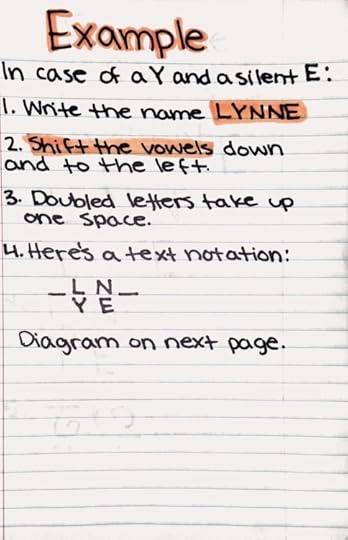 Example
In case of a Y and a silent E:
1. Write the name LYNNE
2. Shift the vowels down
and to the left.
3. Doubled letters take up
one space.
4. Here's a text notation:
_ L N _
Y E
Diagram on next page.